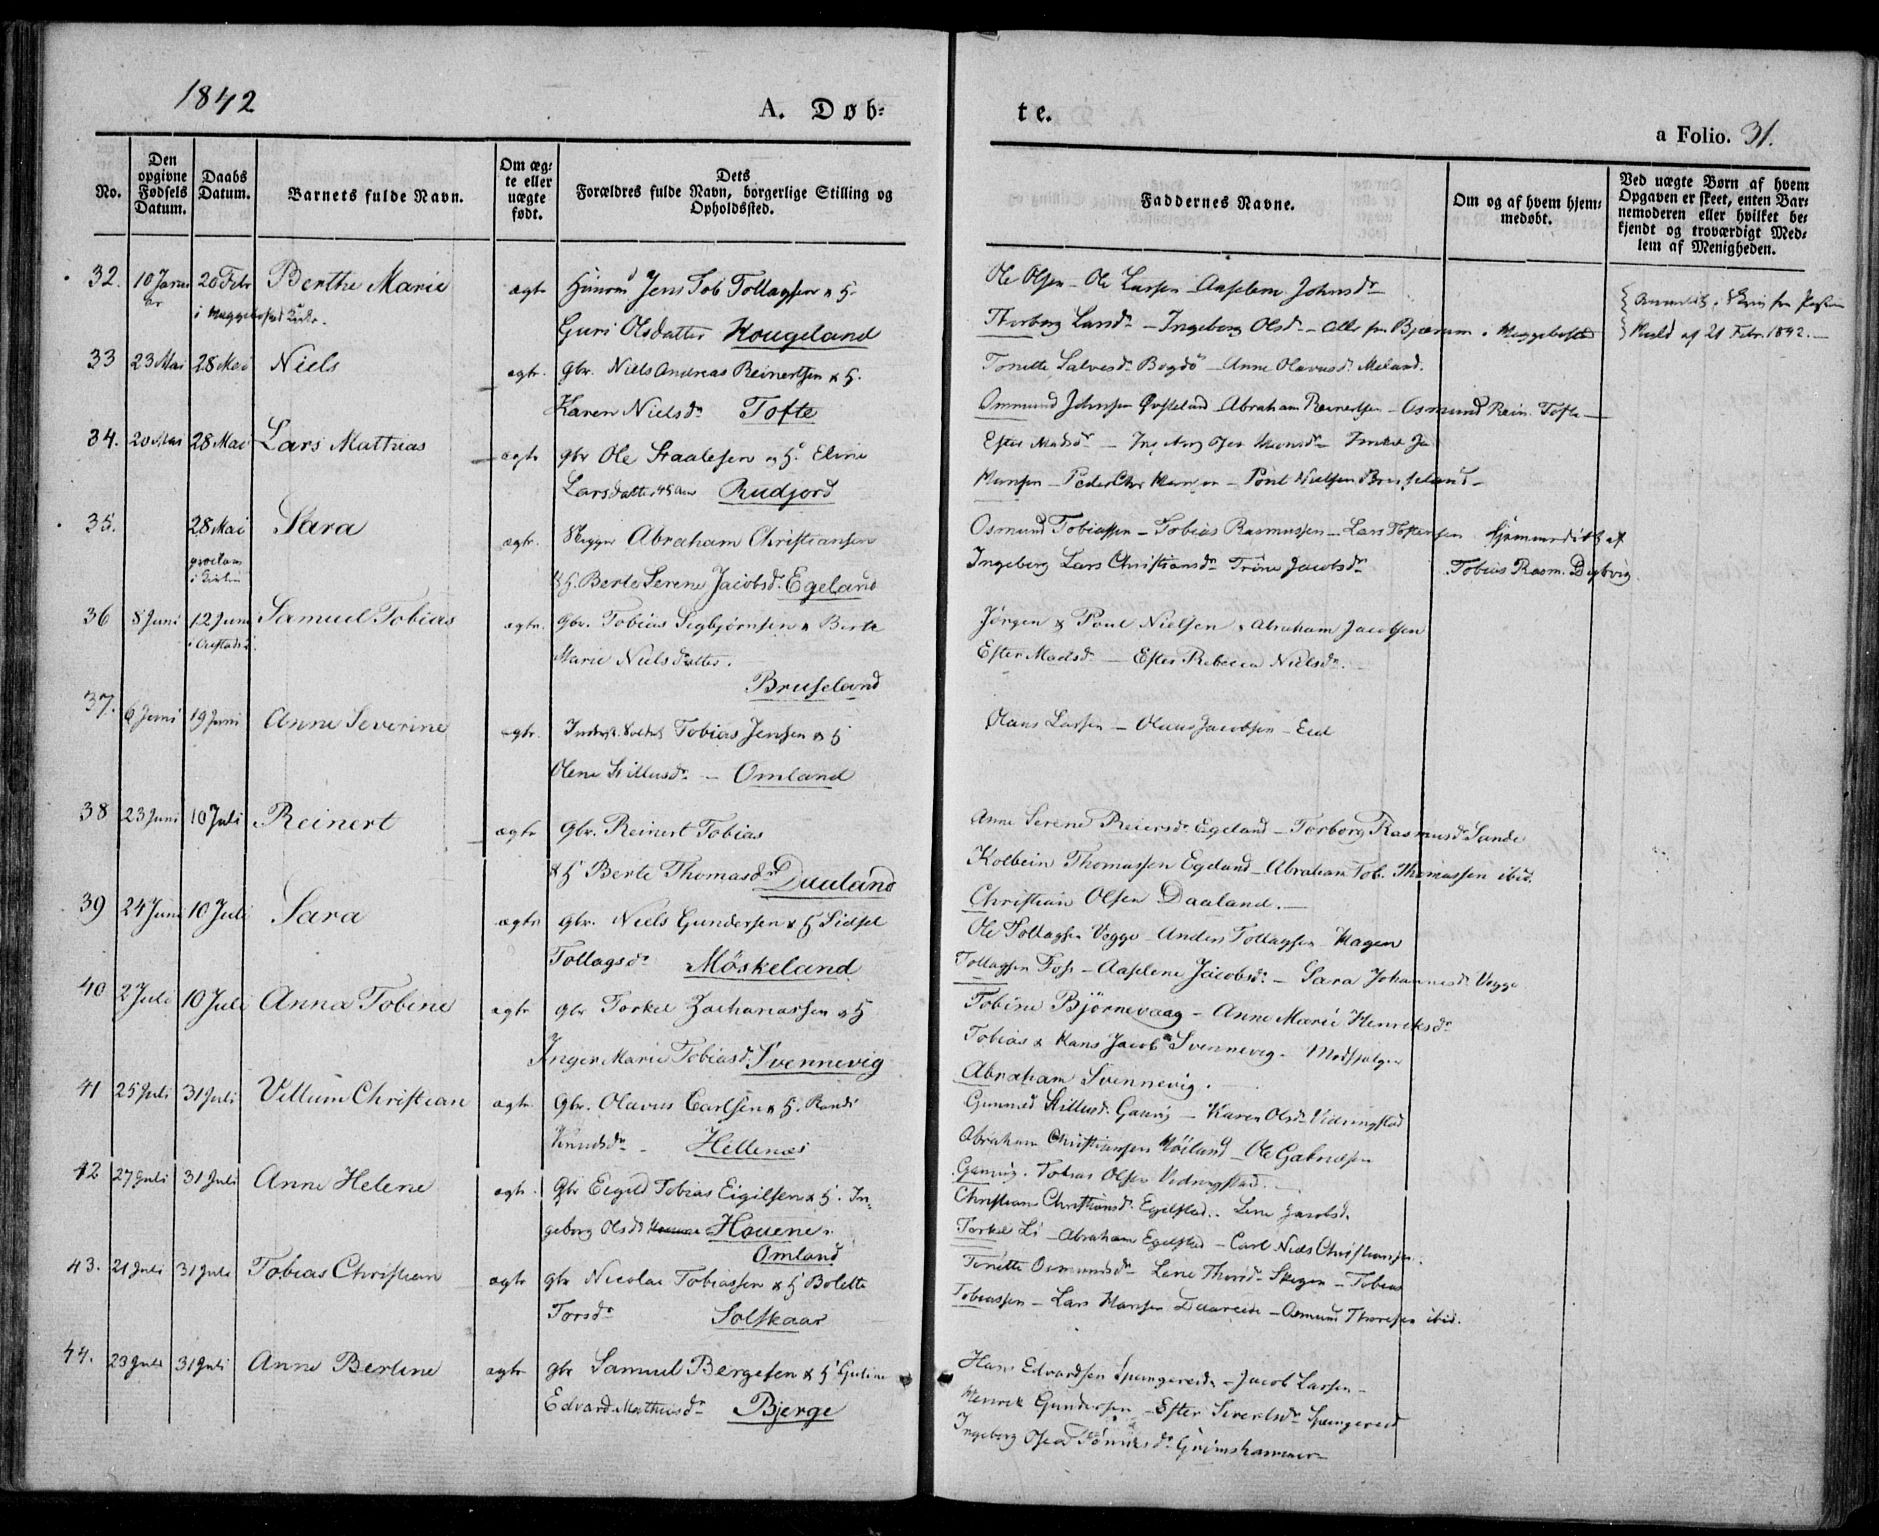 1842
A. Døb-
te.
a Folio. 31.
No.
Den opgivne Fødsels Datum.
Daabs Datum.
Barnets fulde Navn.
Om æg-
te eller
uægte
født.
Dets
Forældres fulde Navn, borgerlige Stilling og
Opholdssted.
Faddernes Navne.
Om og af hvem hjem-
medøbt.
Ved uægte Børn af hvem
Opgaven er skeet, enten Bar-
nemoderen eller hvilket be-
kjendt og troværdigt Med-
lem af Menigheden.
32. 10 Janu 20 Febr Berthe Marie ægte Jens Tob Tollagsen & H.
ar i Kirke.
Guri Olsdatter Kougeland
Ole Olsen - Ole Larsen - Aaselene Johnsdr
Thorborg Larsdr - Ingeborg Olsdr - alle fra Bjærum
af 21 Febr 1842.
33 23 Mai 28 Mai Niels ægte. gbr. Niels Andreas Reinertsen & H.
Karen Nielsdr Tofte
Tonette Salvesdr Bogdö - Anne Olavusdr Meland.
Ommund Johnsen Øvsteland - Abraham Reinertsen - Osmund Rein. Tofte
34. 20 Mai 28 Mai Lars Mathias ægte gbr Ole Staalesen & H. Eline
Larsdatter 45 Aar Rudjord
Ester Madsdr
Hansen - Peder Chr Hansen - Poul Nielsen Bruseland
35. 28 Mai Sara ægte. Abraham Christiansen
proclam
& H. Berte Serene Jacobsdr Egeland
Osmund Tobiassen - Tobias Rasmussen - Lars Torkensen
Ingeborg Lars Christiansdr Trine Jacobsdr
Hjemmedöbt af
Tobias Rasm. Dybvig.
36 8 Juni 12 Juni Samuel Tobias ægte. Gbr. Tobias Sigbjörnsen & Berte
Marie Nielsdatter.
Bruseland
Jörgen & Poul Nielsen & Abraham Jacobsen
Ester Madsdr - Ester Rebecca Nielsdr.
37. 6 Juni 19 Juni Anne Severine ægte. Inderst. Soldat Tobias Jensen & H
Olene Stillusdr - Omland
Olaus Larsen - Olaus Jacobsen - Eid
38 23 Juni 10 Juli Reinert ægte Gbr. Reinert Tobias
& H Berte Thomasdr Daaland
Anne Serene Reiersdr Egeland - Torborg Rasmusdr Sande
Kolbein Thomassen Egeland - Abraham Tob. Thomassen ibid.
Christian Olsen Daaland.
39 24 Juni 10 Juli Sara ægte gbr. Niels Gundersen & H Sidsel
Tollagsdr Möskeland
Ole Tollagsen Vogge - Anders Tollagsen Hagen
Tollagsen Foss - Aaselene Jacobsdr - Sara Johannesdr Vogge
40 2 Juli 10 Juli Anna Tobine ægte gbr Torkel Zachariassen & H
Inger Marie Tobiasdr Svennevig
Tobine Björnevaag - Anne Marie Henriksdr
Tobias & Hans Jacob Svennevig.
Abraham Svennevig.
41 25 Juli 31 Juli Villum Christian ægte Gbr. Olavus Carlsen & H. Randi
Knudsdr - Hellenæs
Gunnild Stillusdr Gausvig - Karen Olsdr Vidringstad
Abraham Christiansen Höiland - Ole Gabrielsen
Gausvig. Tobias Olsen Vidringstad.
42 27 Juli 31 Juli Anne Helene ægte. Gbr Eigild Tobias Eigilsen & H. In-
geborg Olsdr Houene.
Omland
Christiane Christiansdr Egelstad. Lene Jacobsd.
Torkel Li - Abraham Egelstad - Carl Niels Christiansen.
43. 21 Juli 31 Juli Tobias Christian ægte gbr Nicolai Tobiassen & H Bolette
Torsdr Solskaar
Tonette Osmundsdr - Lene Thorsdr Skogen - Tobias
Tobiassen - Lars Hansen Daareid - Osmund Thoresen ibid.
44. 23 Juli 31 Juli Anne Bertine ægte gbr Samuel Bergesen & H Guline
Edvard Mathisdr Bjerge
Hans Edvardsen Spangereid - Jacob Larsen -
Henrik Gundersen - Ester Sivertsdr Spangereid
Ingeborg Osea Tönnesdr Grimshammer